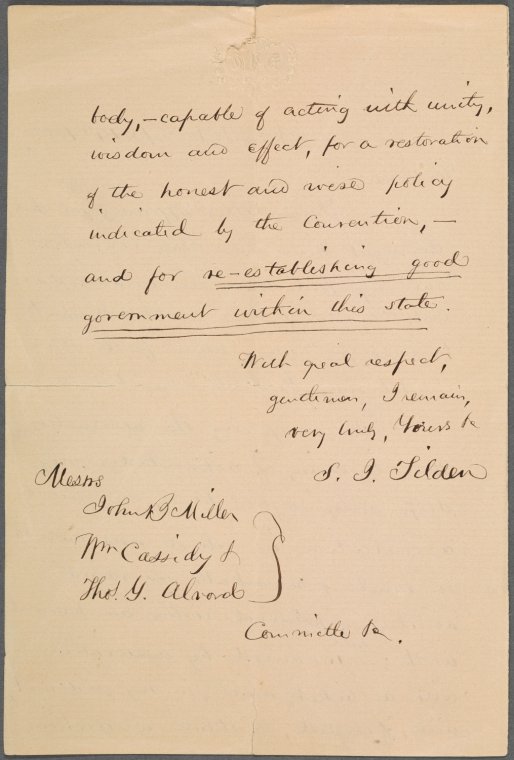 body, - capable of acting with unity,
wisdom and effect, for a restoration
of the honest and wise policy
indicated by the Convention, -
and for re-establishing good
government within this state.
With great respect,
gentlemen, I remain,
very truly, Yours &c
S. J. Tilden
Messrs
John B Miller
Wm Cassidy &
Thos. G. Alvord
Committee &c.